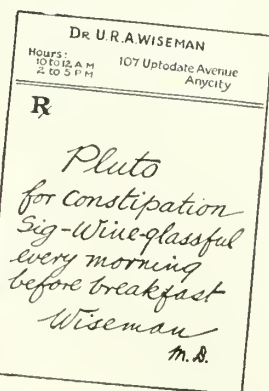 DR U.R.A. WISEMAN
Hours:
10 to 12 A M
2 to 5 P M
107 Uptodate Avenue
Anycity
℞
Pluto
for Constipation
Sig-Wine-glassful
every morning
before breakfast
Wiseman
M.D.